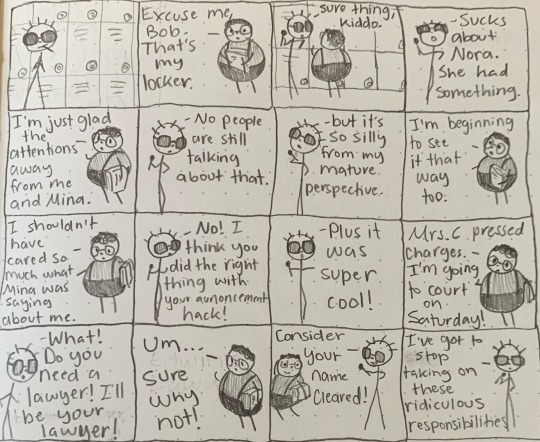 Excuse me,
Bob.
That's
my
locker.
sure thing,
kiddo.
-Sucks
about
Nora.
She had
something.
I'm just glad
the
attentions
away
from me
and Mina.
-No people
are still
talking
about that.
-but it's
so silly
from my
mature
perspective.
I'm beginning
to see
it that
way
too.
I shouldn't
have
cared so
much what
Mina was
saying
about me.
-No! I
think you
did the right
thing with
your announcement
hack!
-Plus it
was
super
cool!
Mrs. C pressed
Charges.
I'm going
to court
on
Saturday!
-What!
Do you
need a
lawyer! I'll
be your
lawyer!
Um...
sure
why
not!
Consider
your
name
Cleared!
I've got to
stop
taking on
these
ridiculous
responsibilities